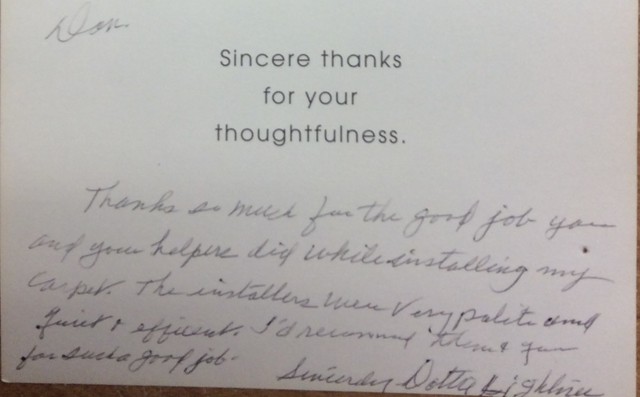 Don
Sincere thanks
for your
thoughtfulness.
Thanks so much for the good job you
and your helpers did while installing my
carpet. The installers were very polite and
quiet & efficient. I'd recommend them & you
for such a good job.
Sincerely Dotta